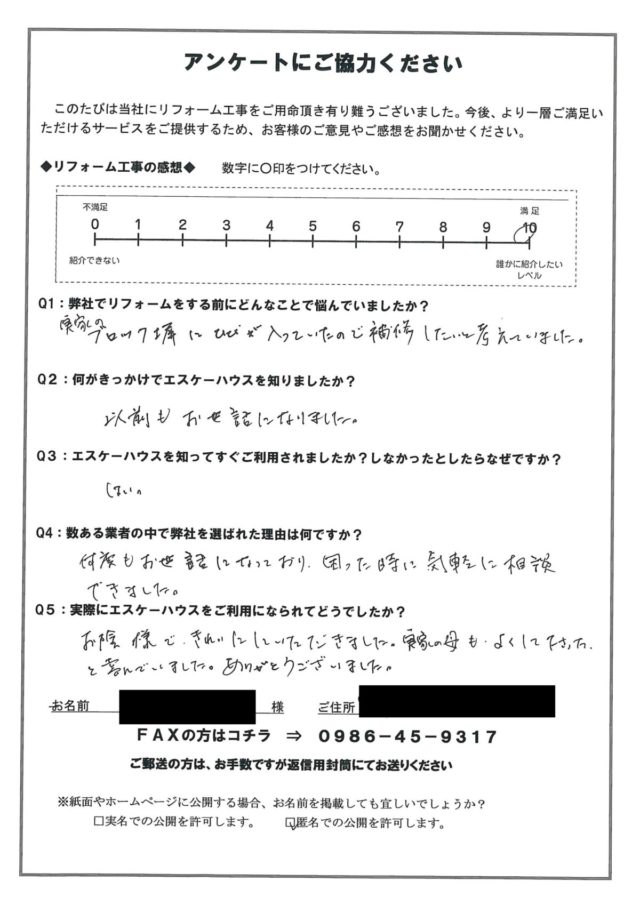 アンケートにご協力ください
このたびは当社にリフォーム工事をご用命頂き有り難うございました。今後、より一層ご満足い
ただけるサービスをご提供するため、お客様のご意見やご感想をお聞かせください。
◆リフォーム工事の感想◆ 数字に〇印をつけてください。
不満足 満足
0 1 2 3 4 5 6 7 8 9 10
紹介できない 誰かに紹介したい
レベル
Q1：弊社でリフォームをする前にどんなことで悩んでいましたか？
実家の
ブロック塀にひびが入っていたので補修したいと考えていました。
Q2：何がきっかけでエスケーハウスを知りましたか？
以前もお世話になりました。
Q3：エスケーハウスを知ってすぐご利用されましたか？しなかったとしたらなぜですか？
はい。
Q4：数ある業者の中で弊社を選ばれた理由は何ですか？
何度もお世話になっており、困った時に気軽に相談
できました。
Q5：実際にエスケーハウスをご利用になられてどうでしたか？
お陰様で、きれいにしていただきました。実家の母も、よくして下さった、
と喜んでいました。ありがとうございました。
お名前 様 ご住所
FAXの方はコチラ ⇒ 0986-45-9317
ご郵送の方は、お手数ですが返信用封筒にてお送りください
※紙面やホームページに公開する場合、お名前を掲載しても宜しいでしょうか？
□実名での公開を許可します。 ☑匿名での公開を許可します。